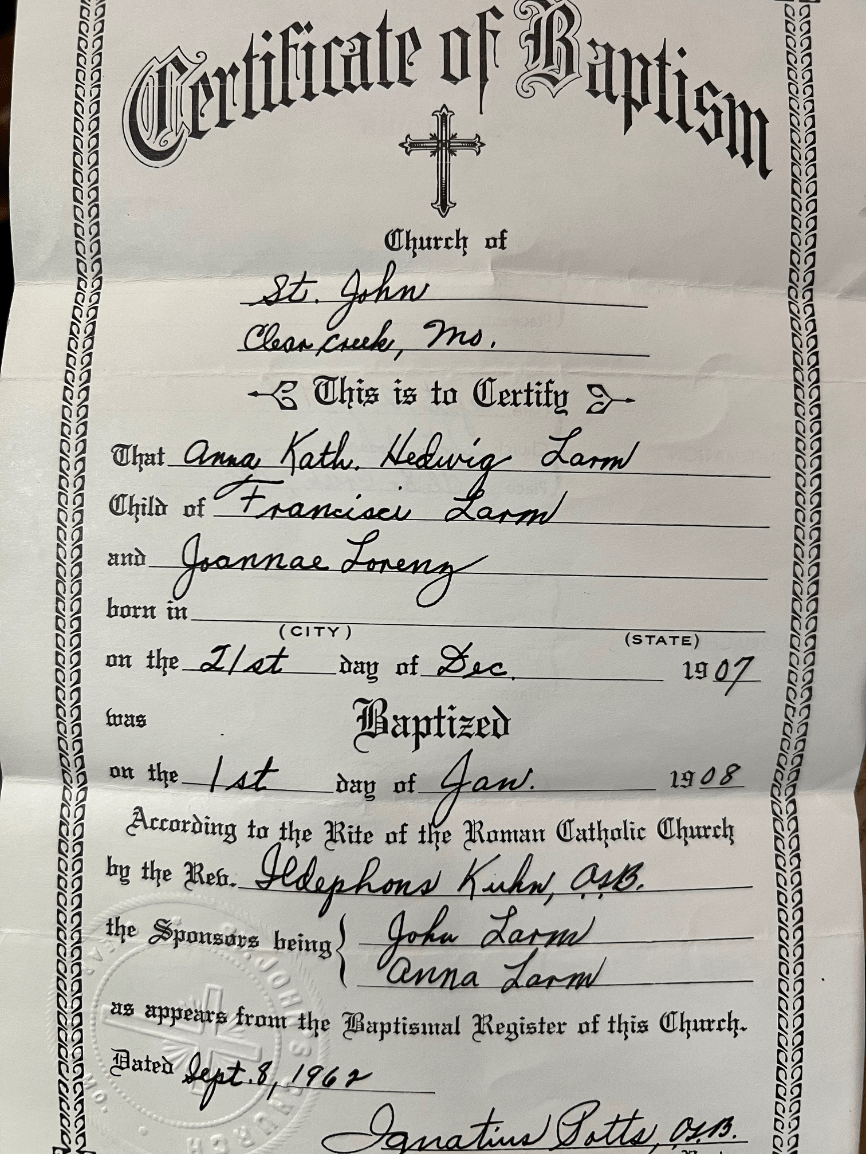 Certificate of Baptism
Church of
St. John
Clear Creek, Mo.
This is to Certify
That Anna Kath. Hedwig Larm
Child of Francisci Larm
and Joannae Lorenz
born in
(CITY) (STATE)
on the 21st day of Dec. 1907
was Baptized
on the 1st day of Jan. 1908
According to the Rite of the Roman Catholic Church
by the Rev. Ildephons Kuhn, O.S.B.
the Sponsors being John Larm
Anna Larm
as appears from the Baptismal Register of this Church.
Dated Sept. 8, 1962
Ignatius Potts, O.S.B.